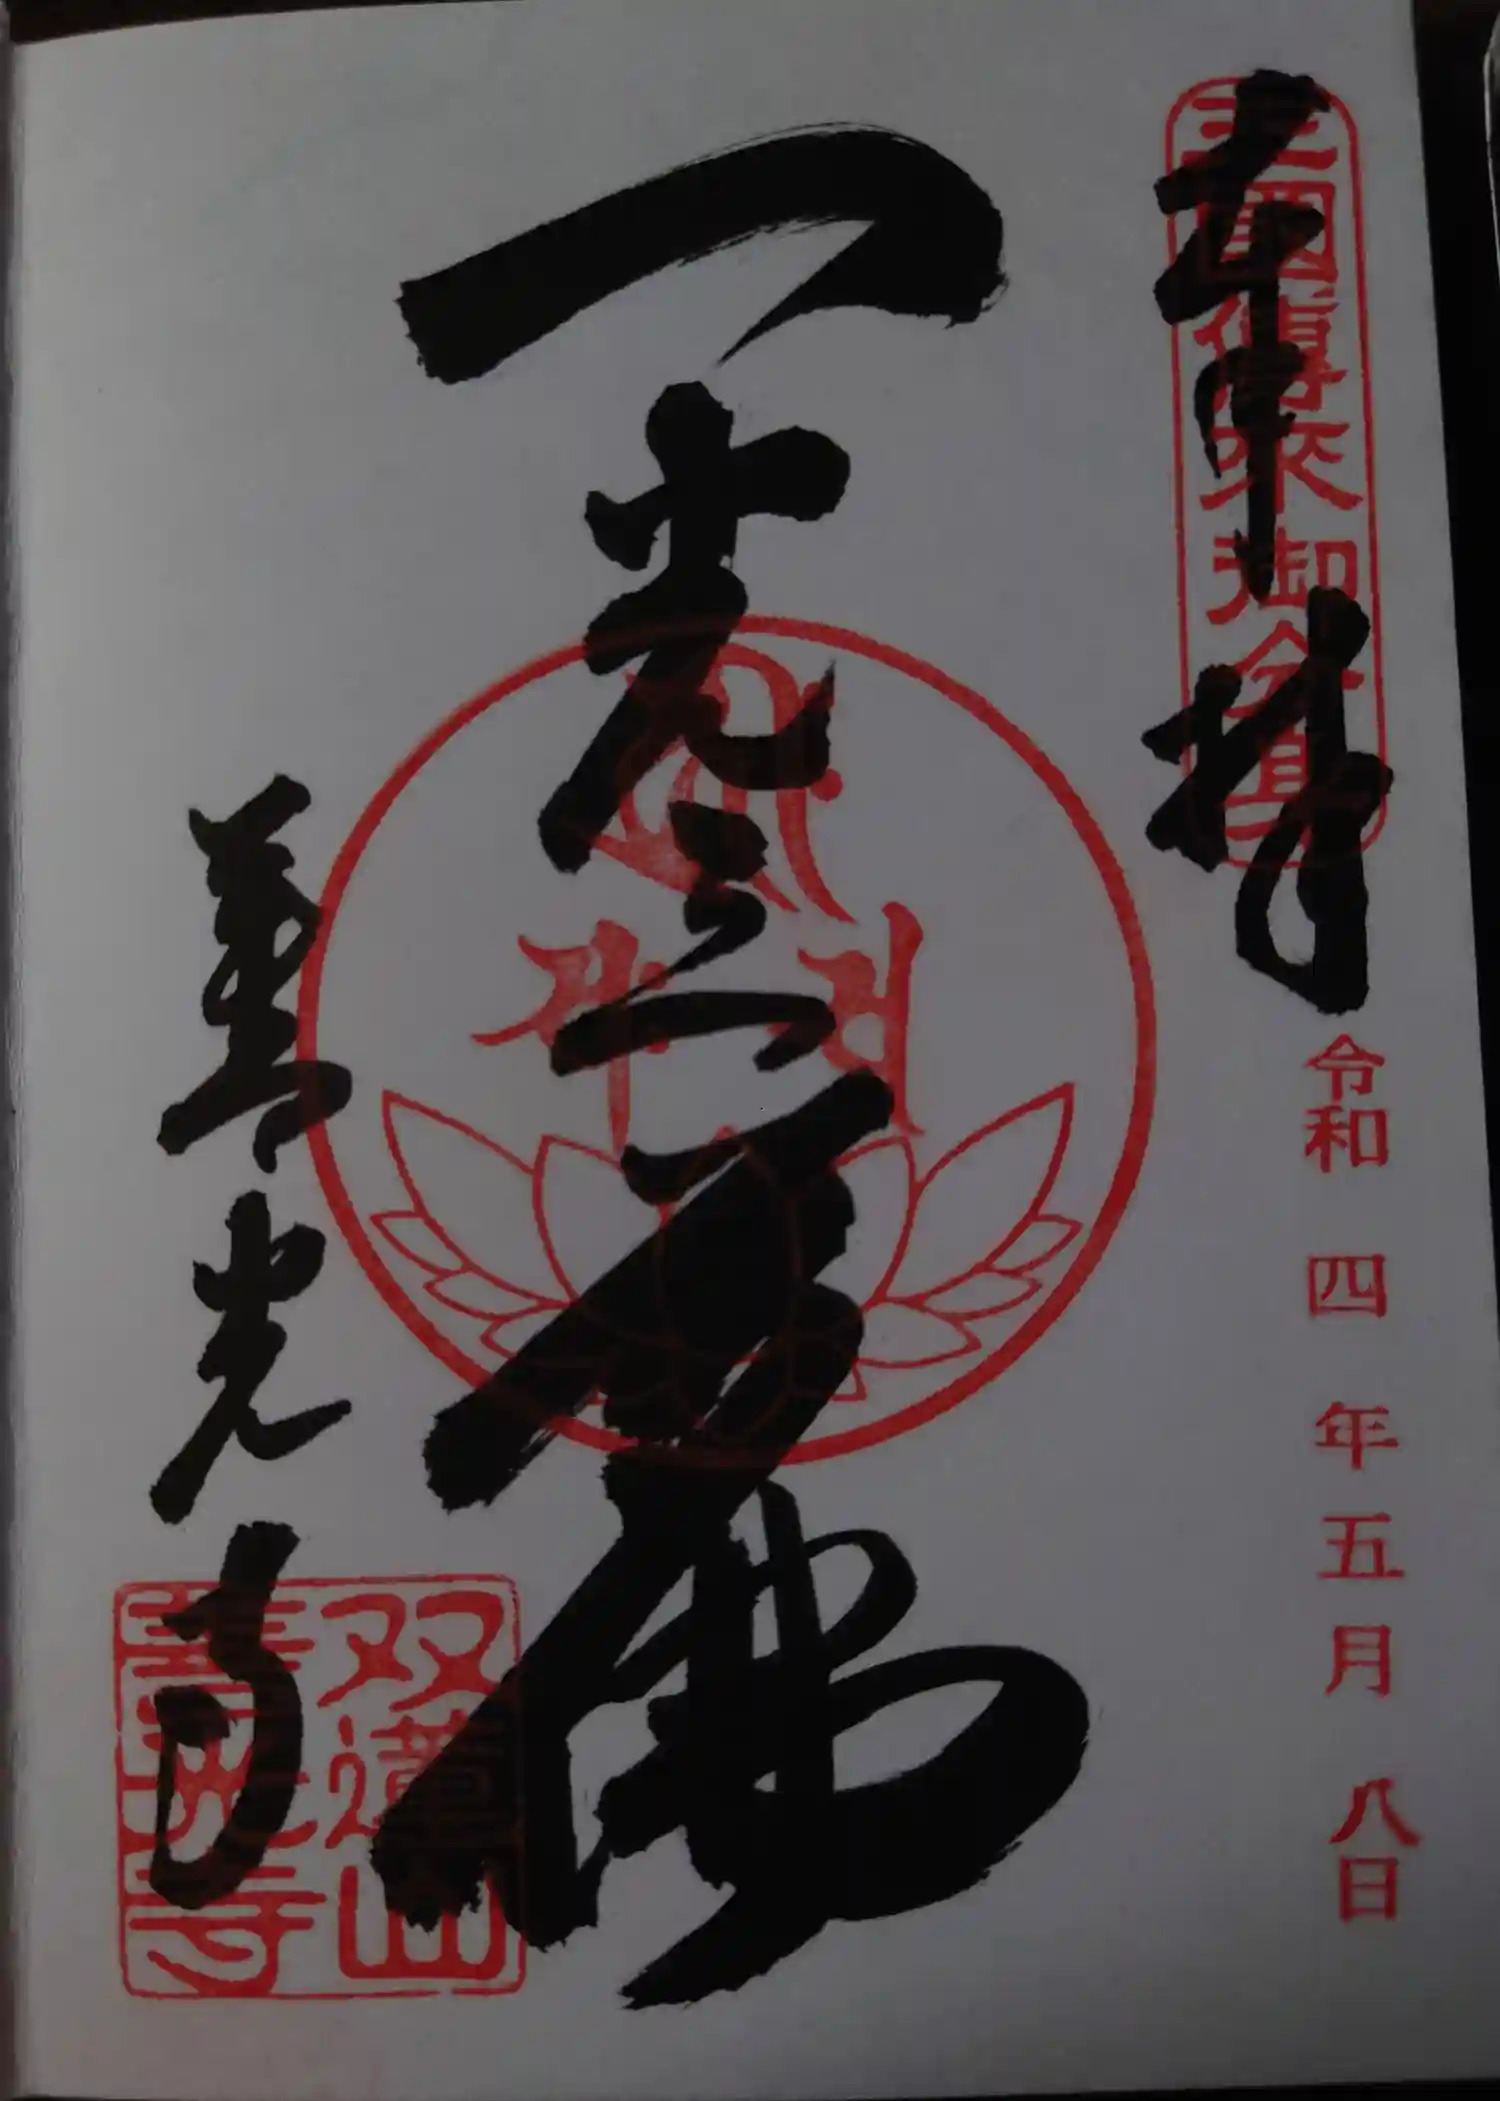 奉拝
三國傳來御分身
令和四年五月八日
一光三尊佛
善光寺
双蓮山
善光寺